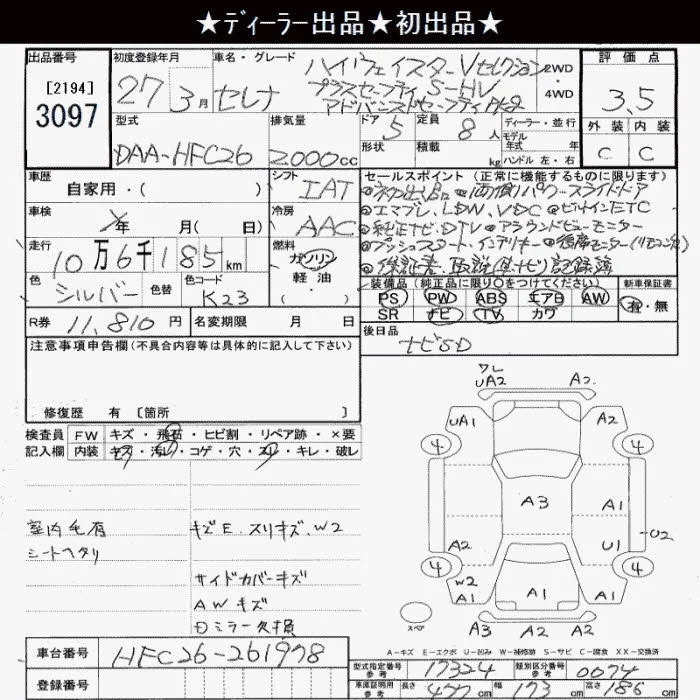 ★ディーラー出品★初出品★
出品番号
[2194]
3097
初度登録年月
27年3月
車名・グレード
セレナ
ハイウェイスターVセレクション
プラスセーフティ S-HV
アドバンスドセーフティ
2WD
4WD
評価点
3.5
外装 内装
C C
型式
DAA-HFC26
排気量
2.000cc
ドア
5
形状
定員
8人
積載
kg
ディーラー・並行
モデル
年式 年
ハンドル 左・右
車歴
自家用・( )
シフト
IAT
車検
年 月( 日)
冷房
AAC
走行
10万6千185km
燃料
ガソリン
軽油
・( )
色
シルバー
色替
色コード
K23
R券
11,810円
名変期限 月 日
セールスポイント(正常に機能するものに限ります)
◎初出品 ◎両側パワースライドドア
◎エマブレ、LDW、VDC ◎ビルトインETC
◎純正ナビ、DTV ◎アラウンドビューモニター
◎プッシュスタート・インテリキー ◎後席モニター(リモコン欠)
◎保証書・取説(車・ナビ)記録簿
装備品(純正品に限り○をつけてください)
PS PW ABS エアB AW
SR ナビ TV カワ
新車保証書
有・無
後日品
ナビSD
注意事項申告欄(不具合内容等は具体的に記入して下さい)
修復歴 有 [箇所 ]
検査員
記入欄
FW キズ・飛石・ヒビ割・リペア跡・×要
内装 キズ・汚れ・コゲ・穴・スリ・キレ・破レ
室内毛有
シートヘタリ
キズE、スリキズ、W2
サイドカバーキズ
AWキズ
ミラー欠損
ワレ
UA2 A2
UA1 A2
4 4
A3
A1
A2
U2
U1
4 4
W2
A1
A1
A1
A3 A2 A2
スペア
A-キズ E-エクボ U-凹み W-補修跡 S-サビ C-腐食 XX-交換済
車台番号
HFC26-261978
登録番号
型式指定番号
参考
17324
類別区分番号
参考
0074
車庫証明用
参考
長さ 477cm 幅 173cm 高さ 186cm